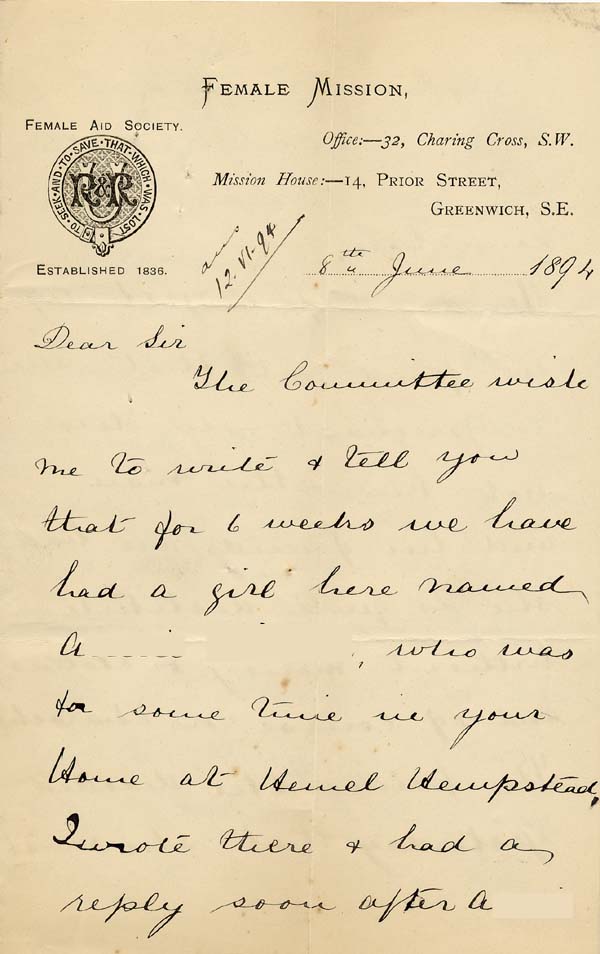 FEMALE MISSION,
FEMALE AID SOCIETY.
Office:—32, Charing Cross, S.W.
Mission House:—14, PRIOR STREET,
GREENWICH, S.E.
TO·SEEK·AND·TO·SAVE·THAT·WHICH·WAS·LOST
R&R
ESTABLISHED 1836.
ans
12.VI.94
8th June 1894
Dear Sir
The Committee wish
me to write & tell you
that for 6 weeks we have
had a girl here named
A , who was
for some time in your
Home at Hemel Hempstead,
I wrote there & had a
reply soon after A